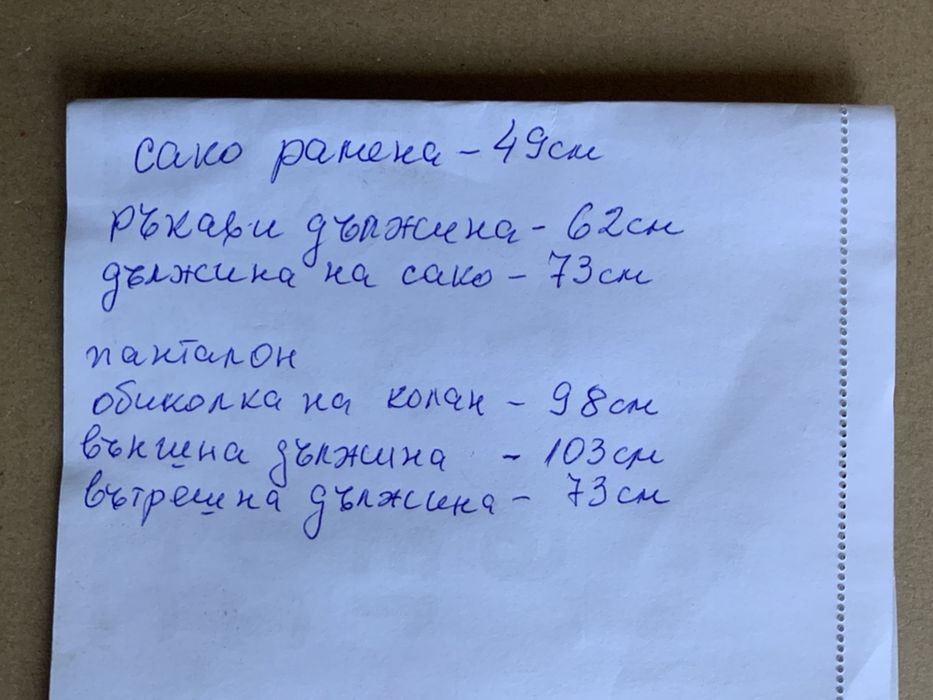 сако рамена - 49см
ръкави дължина - 62см
дължина на сако - 73см
панталон
обиколка на колан - 98см
външна дължина - 103см
вътрешна дължина - 73см